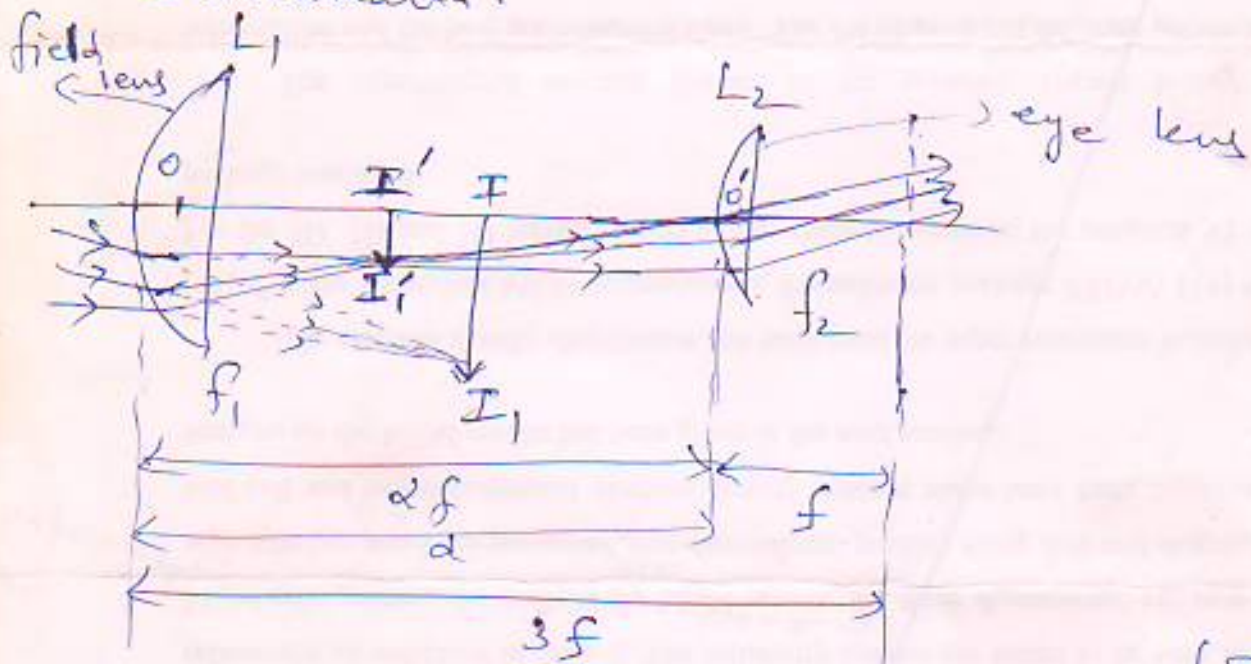 field
lens
L₁
L₂
eye lens
O
I'
I
O'
I₁'
I₁
f₁
f₂
2f
f
d
3f